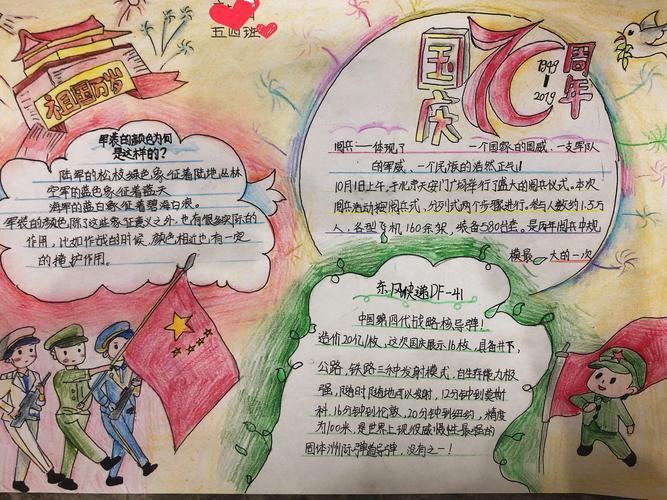 五四班
祖国万岁
国庆70周年
1949
2019
军装的颜色为何
是这样的?
陆军的松枝绿色象征着陆地丛林
空军的蓝色象征着蓝天
海军的蓝白象征着碧海白浪。
军装的颜色,除了这些象征意义之外,也有很多实际的
作用,比如作战的时候,颜色相近也有一定
的掩护作用。
阅兵——体现了 一个国家的国威、一支军队
的军威、一个民族的浩然正气!
10月1日上午,于北京天安门广场举行了盛大的阅兵仪式。本次
阅兵活动按阅兵式、分列式两个步骤进行。参与人数约1.5万
人,各型飞机160余架,装备580台套,是历年阅兵中规
模最 大的一次
东风快递DF-41
中国第四代战略核导弹!
造价20亿/枚,这次国庆展示16枚,具备井下,
公路,铁路三种发射模式,自生存能力极
强,随时随地可以发射,12分钟到莫斯
科,16分钟到伦敦,20分钟到纽约,精度
为100米,是世界上现役威慑性最强的
固体洲际弹道导弹,没有之一!